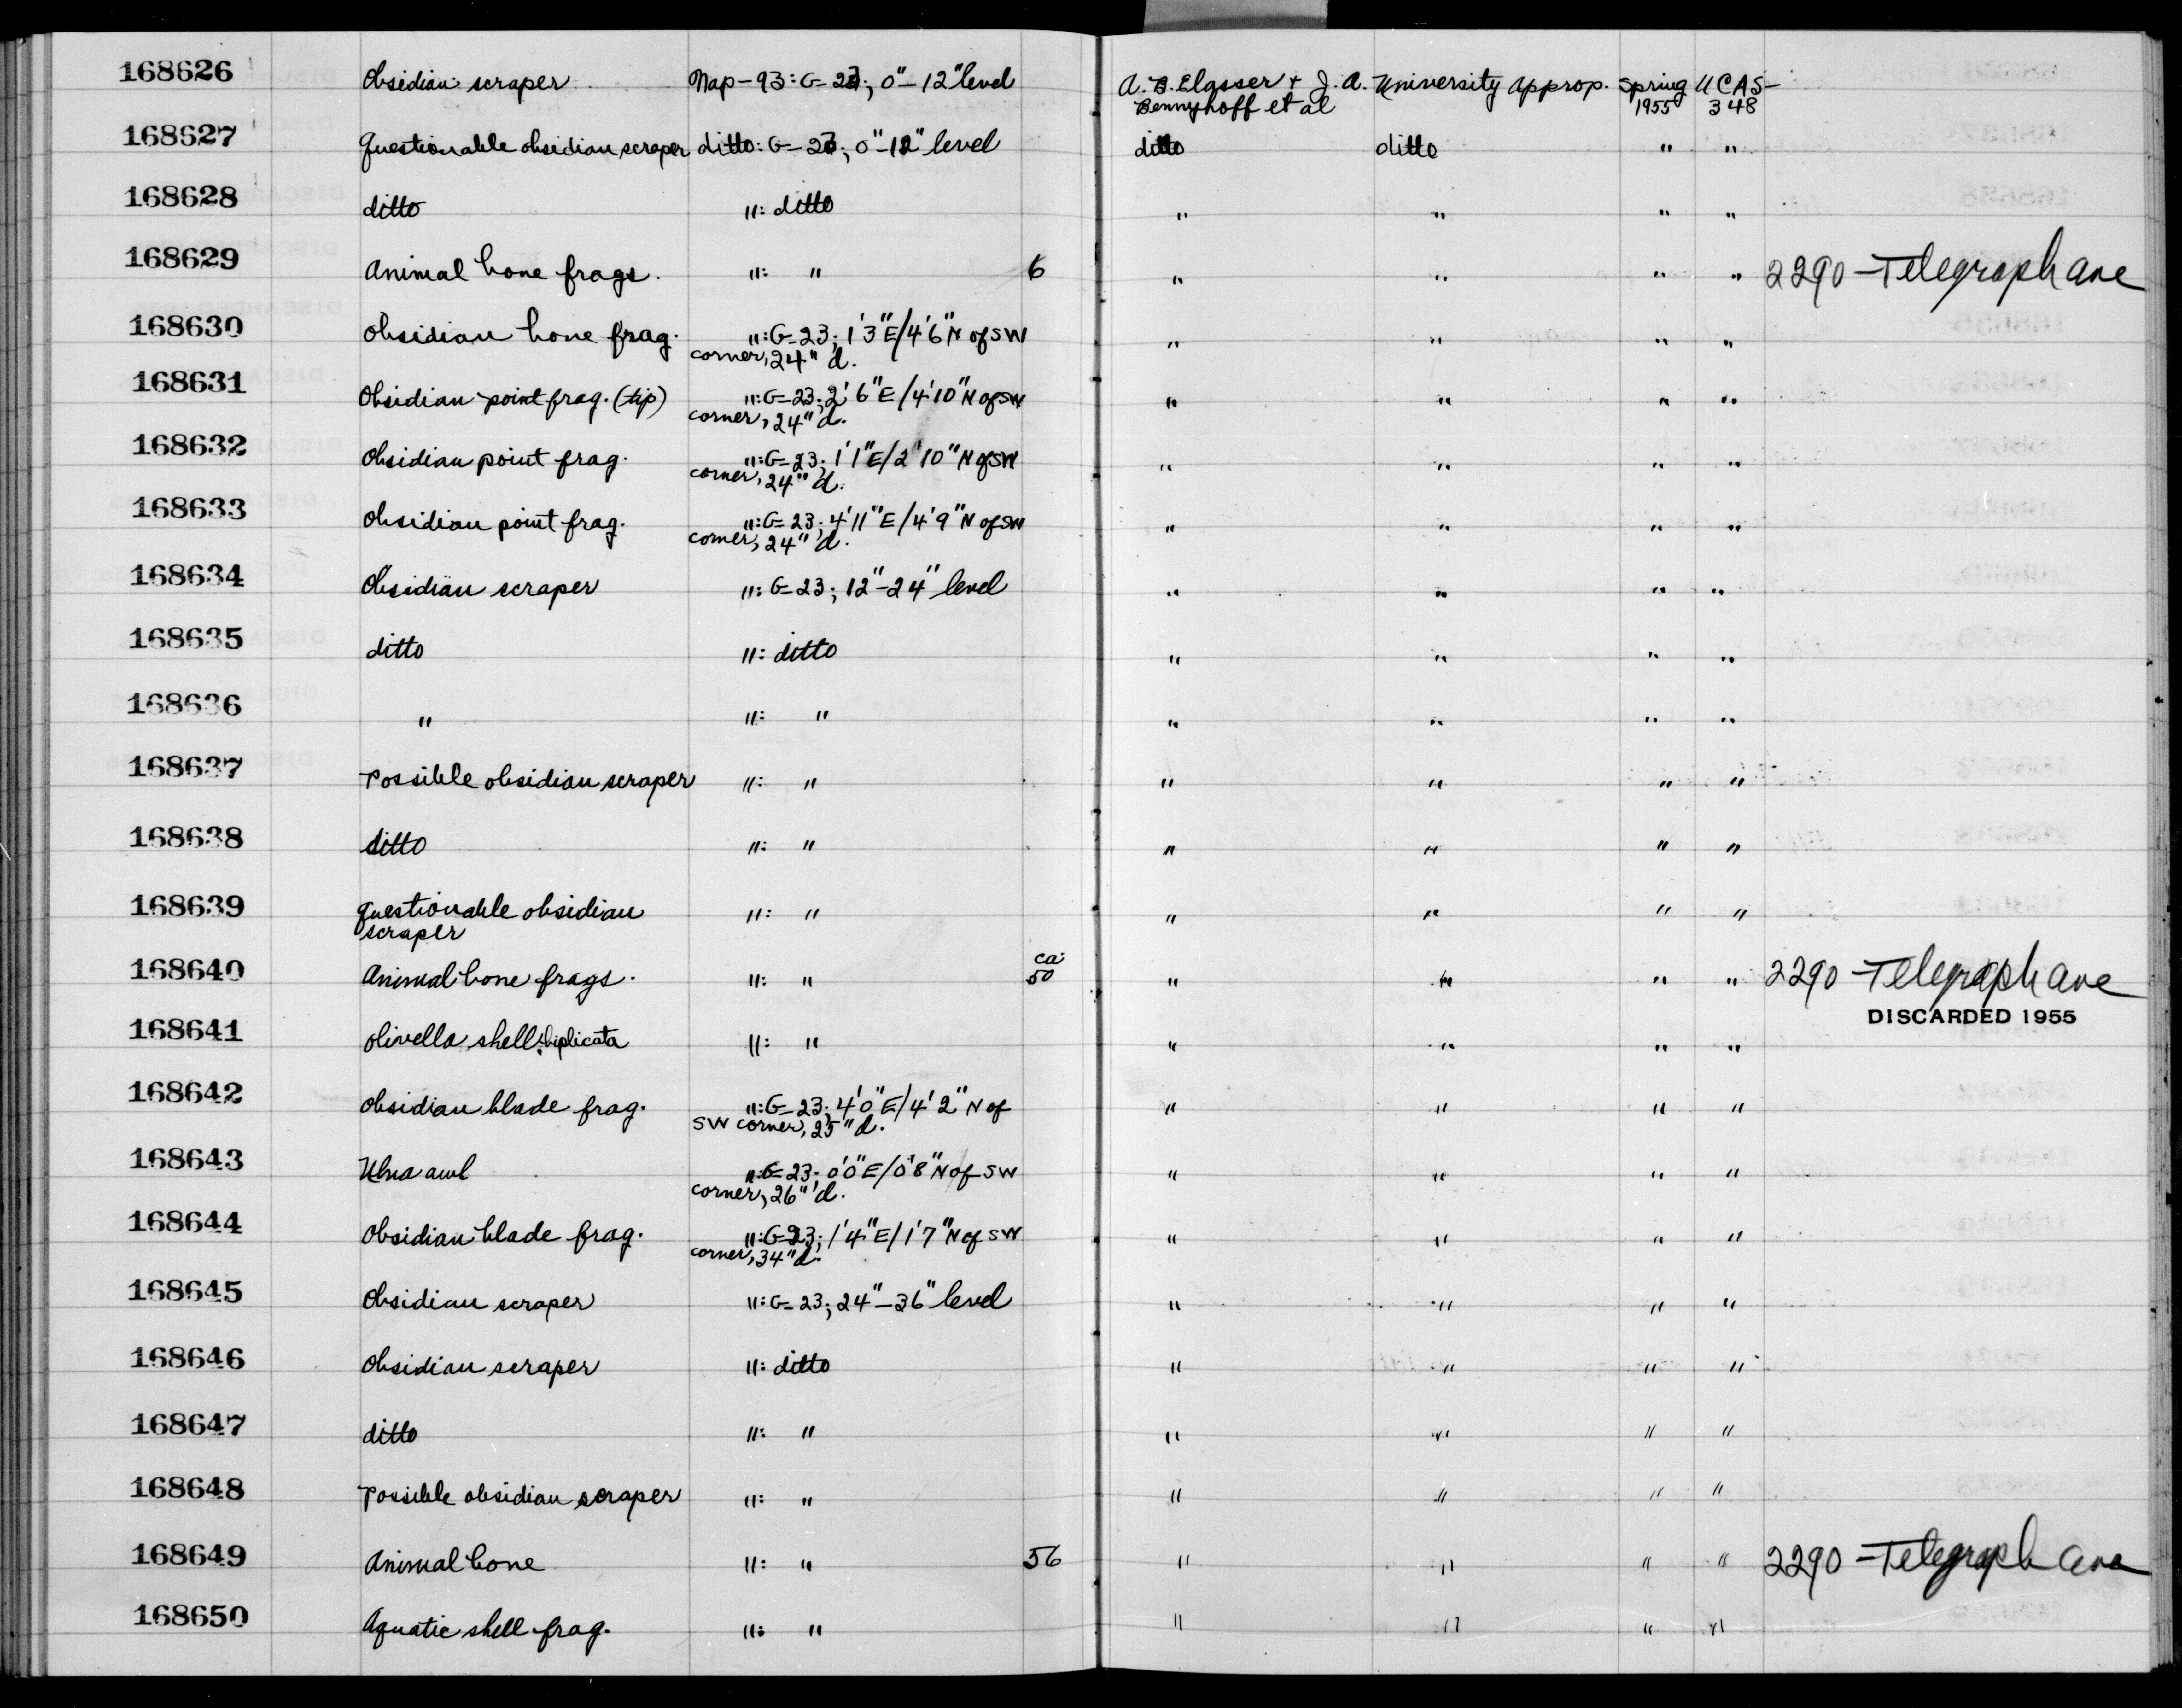 168626 Obsidian scraper Nap-93: G-23; 0"-12" level A. B. Elasser + J. A. University Approp. Spring UCAS-
Bennyhoff et al 1955 348
168627 Questionable obsidian scraper ditto: G-23; 0"-12" level ditto ditto " "
168628 ditto ": ditto " " " "
168629 Animal bone frags. ": " 6 " " " " 2290-Telegraph Ave
168630 Obsidian bone frag. ": G-23; 1'3"E/4'6"N of SW " " " "
corner, 24" d.
168631 Obsidian point frag. (tip) ": G-23; 2'6"E/4'10"N of SW " " " "
corner, 24" d.
168632 Obsidian point frag. ": G-23; 1'1"E/2'10"N of SW " " " "
corner, 24" d.
168633 Obsidian point frag. ": G-23; 4'11"E/4'9"N of SW " " " "
corner, 24" d.
168634 Obsidian scraper ": G-23; 12"-24" level " " " "
168635 ditto ": ditto " " " "
168636 " ": " " " " "
168637 Possible obsidian scraper ": " " " " "
168638 ditto ": " " " " "
168639 Questionable obsidian ": " " " " "
scraper
168640 Animal bone frags. ": " ca. 50 " " " " 2290-Telegraph Ave
DISCARDED 1955
168641 Olivella shell: biplicata ": " " " " "
168642 Obsidian blade frag. ": G-23; 4'0"E/4'2"N of " " " "
SW corner, 25" d.
168643 Ulna awl ": G-23; 0'0"E/0'8"N of SW " " " "
corner, 26" d.
168644 Obsidian blade frag. ": G-23; 1'4"E/1'7"N of SW " " " "
corner, 34" d.
168645 Obsidian scraper ": G-23; 24"-36" level " " " "
168646 Obsidian scraper ": ditto " " " "
168647 ditto ": " " " " "
168648 Possible obsidian scraper ": " " " " "
168649 Animal bone ": " 56 " " " " 2290-Telegraph Ave
168650 Aquatic shell frag. ": " " " " "